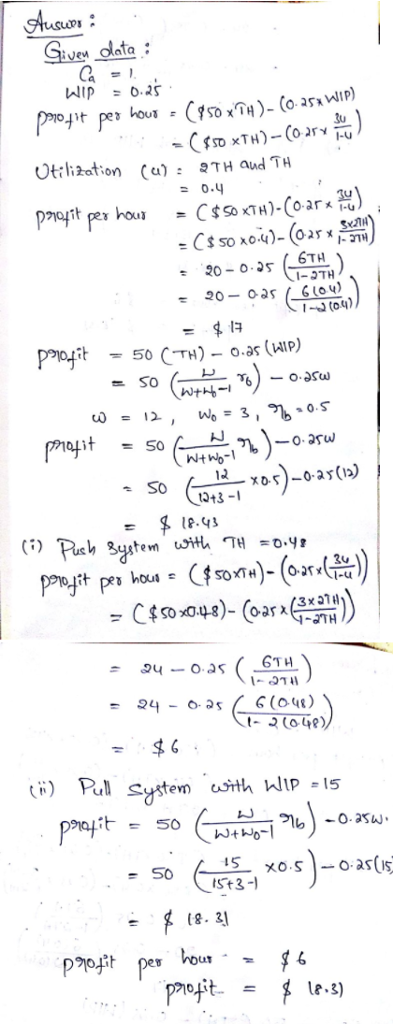 Answer :
Given data :
Ca = 1.
WIP = 0.25
profit per hour = ($50 x TH) - (0.25 x WIP)
= ($50 x TH) - (0.25 x 3u/1-u)
Utilization (u) = 2TH and TH
= 0.4
profit per hour = ($50 x TH) - (0.25 x 3u/1-u)
= ($50 x 0.4) - (0.25 x 3x2TH/1-2TH)
= 20 - 0.25 (6TH/1-2TH)
= 20 - 0.25 (6(0.4)/1-2(0.4))
= $17
profit = 50 (TH) - 0.25 (WIP)
= 50 (W/W+W0-1 rb) - 0.25w
w = 12, W0 = 3, rb = 0.5
profit = 50 (W/W+W0-1 rb) - 0.25w
= 50 (12/12+3-1 x 0.5) - 0.25(12)
= $ 18.43
(i) Push System with TH = 0.48
profit per hour = ($50xTH) - (0.25x(3u/1-u))
= ($50x0.48) - (0.25x(3x2TH/1-2TH))
= 24 - 0.25 (6TH/1-2TH)
= 24 - 0.25 (6(0.48)/1-2(0.48))
= $6
(ii) Pull System with WIP = 15
profit = 50 (W/W+W0-1 rb) - 0.25W.
= 50 (15/15+3-1 x0.5) - 0.25(15
= $ 18.31
profit per hour = $6
profit = $ 18.31